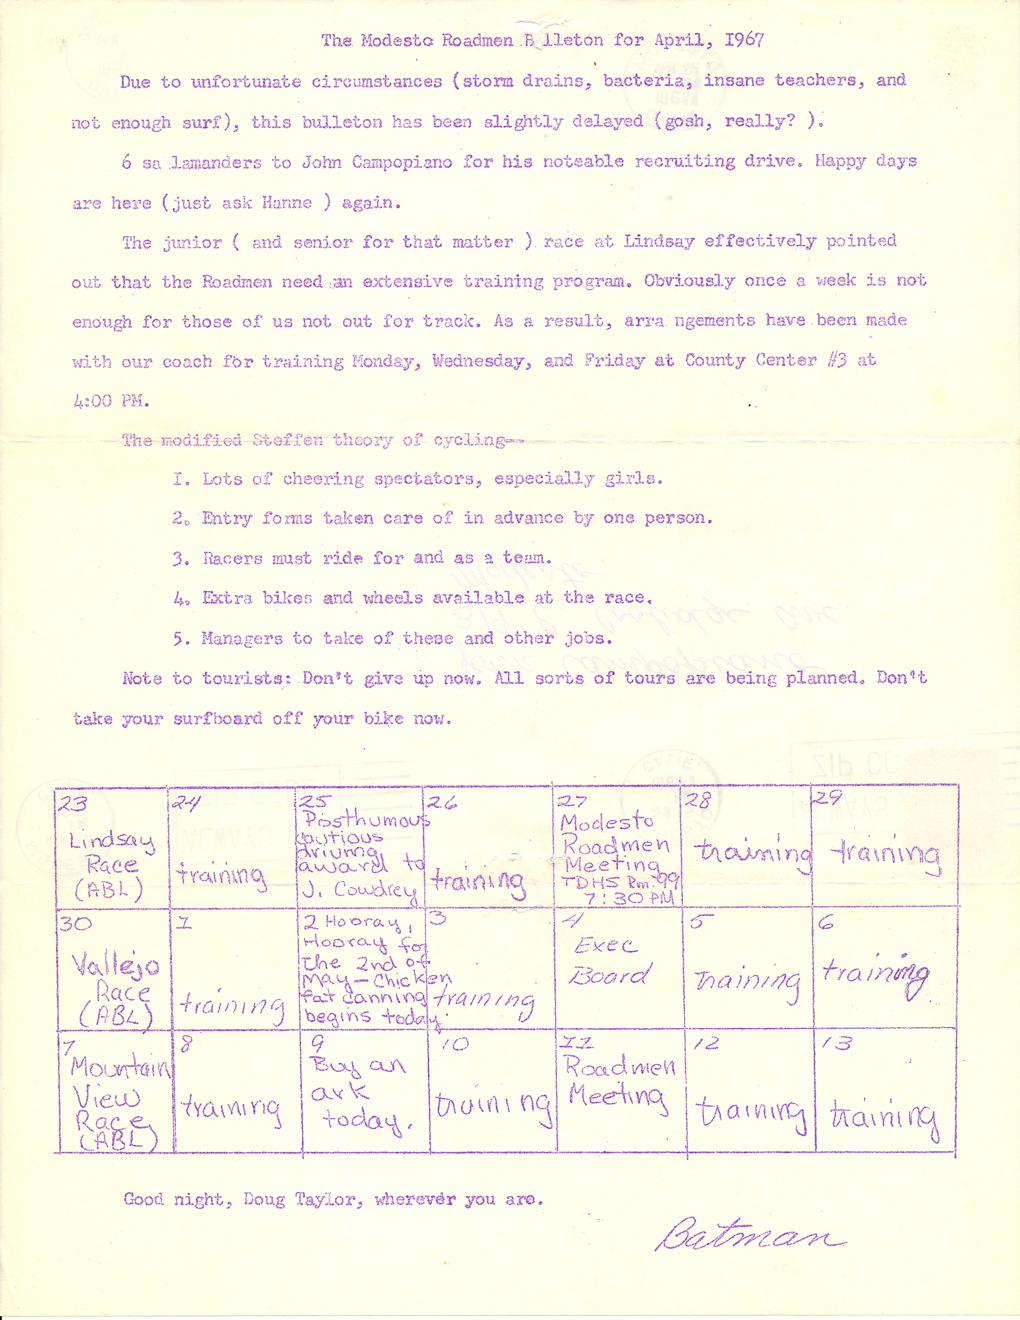 The Modesto Roadmen B lleton for April, 1967
Due to unfortunate circumstances (storm drains, bacteria, insane teachers, and
not enough surf), this bulleton has been slightly delayed (gosh, really? ).
6 sa lamanders to John Campopiano for his noteable recruiting drive. Happy days
are here (just ask Hanne ) again.
The junior ( and senior for that matter ) race at Lindsay effectively pointed
out that the Roadmen need an extensive training program. Obviously once a week is not
enough for those of us not out for track. As a result, arra ngements have been made
with our coach for training Monday, Wednesday, and Friday at County Center #3 at
4:00 PM.
The modified Steffen theory of cycling--
1. Lots of cheering spectators, especially girls.
2. Entry forms taken care of in advance by one person.
3. Racers must ride for and as a team.
4. Extra bikes and wheels available at the race.
5. Managers to take of these and other jobs.
Note to tourists: Don't give up now. All sorts of tours are being planned. Don't
take your surfboard off your bike now.
23
Lindsay
Race
(ABL)
24
training
25
Posthumous
cautious
driving
award to
J. Cowdrey
26
training
27
Modesto
Roadmen
Meeting
TDHS Rm. 99
7:30 PM
28
training
29
training
30
Vallejo
Race
(ABL)
1
training
2 Hooray,
Hooray for
the 2nd of
May-Chicken
fat canning
begins today.
3
training
4
Exec
Board
5
training
6
training
7
Mountain
View
Race
(ABL)
8
training
9
Buy an
ark
today.
10
training
11
Roadmen
Meeting
12
training
13
training
Good night, Doug Taylor, wherever you are.
Batman